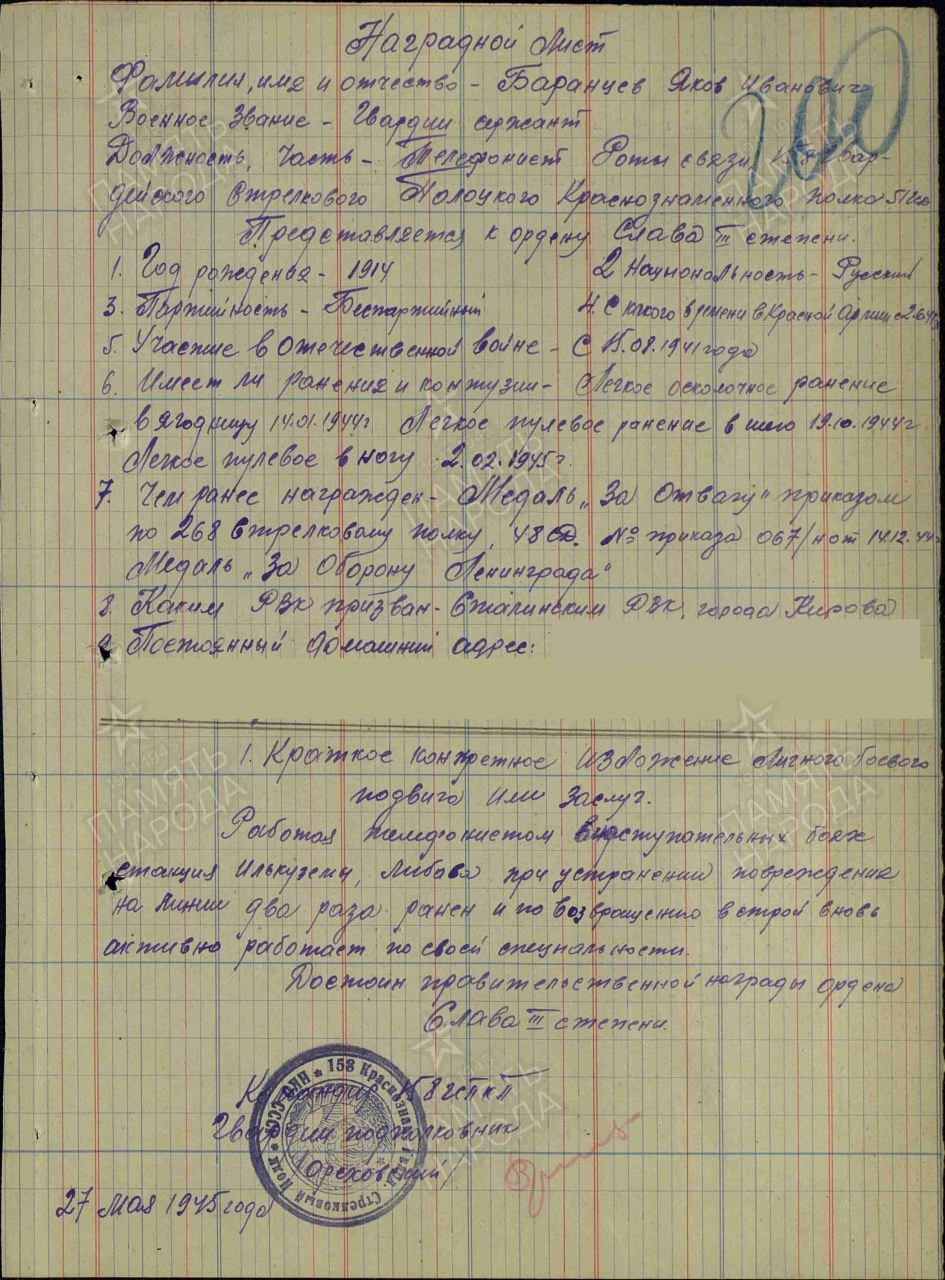 Наградной Лист
Фамилия, имя и отчество - Баранцев Яков Иванович
Военное звание - Гвардии сержант
Должность, часть - Телефонист Роты связи 158 Гвар-
дейского Стрелкового Полоцкого Краснознаменного полка 51
Представляется к ордену Слава III степени.
1. Год рождения - 1914 2 Национальность - Русский
3. Партийность - Беспартийный 4. С какого времени в Красной Армии с
5. Участие в Отечественной войне - С 15.08.1941 года
6. Имеет ли ранения и контузии - Легкое осколочное ранение
в ягодицу 14.01.1944г Легкое пулевое ранение в шею 19.10.1944г
Легкое пулевое в ногу 2.02.1945г.
7. Чем ранее награжден - Медаль „За Отвагу" приказом
по 268 стрелковому полку, 48 СД. № приказа 067/н от 14.12.44г
Медаль „За Оборону Ленинграда"
8. Каким РВК призван - Сталинским РВК города Кирова
9 Постоянный домашний адрес:
1. Краткое конкретное изложение личного боевого
подвига или заслуг.
Работая телефонистом в наступательных боях
станция Илькуземи, Либава при устранении повреждения
на линии два раза ранен и по возвращению в строй вновь
активно работает по своей специальности.
Достоин правительственной награды ордена
Слава III степени.
Командир 158 гспкп
Гвардии подполковник
/Ореховский/
27 мая 1945 года
200
158 Краснознам. Гвард. Стрелковый Полк ★ НКО СССР ★
ПАМЯТЬ НАРОДА